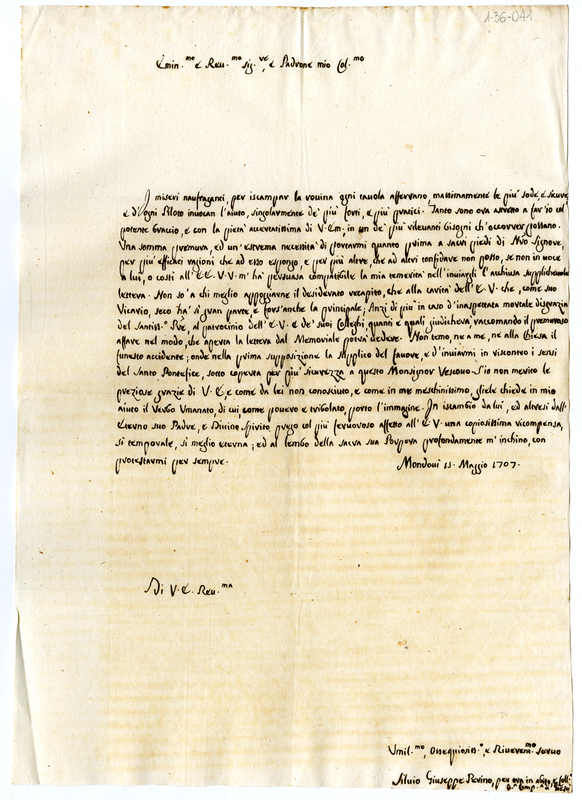 1-36-041
Emin.mo e Reu.mo Sig.re, e Padrone mio Col.mo
I miseri naufraganti, per iscampar la rouina ogni tauola afferrano massimamente le piu' sode, e sicure,
e d'ogni Piloto inuocan l'aiuto, singolarmente de' piu' forti, e piu' pratici. Tanto sono ora astretto a far io col
potente braccio, e con la pieta' accertatissima di V. Em. in un de' piu' rileuanti bisogni ch'occorrer possano.
Una somma premura, ed un'estrema necessita' di portarmi quanto prima a sacri piedi di N'ro Signore,
per piu' efficaci ragioni che ad esso espongo, e per piu' altre, che ad altri confidare non posso, se non in uoce
a lui, o costi all'E. V. V. m'ha' persuasa compatibile la mia temerita' nell'inuiargli l'acchiusa supplicheuole
lettera. Non so' a chi meglio appoggiarne il desiderato recapito, che alla carita' dell'E. V. che, come suo
Vicario, seco ha' si gran parte, e fors'anche la principale; Anzi di piu' in caso d'inaspettata mortale disgrazia
del Santiss.o P're, al patrocinio dell'E. V. e de' suoi Colleghi quanti e quali giudichera', raccomando il premuroso
affare nel modo, che aperta la lettera dal Memoriale potra' dedurre. Non temo, ne a me, ne alla Chiesa il
funesto accidente; onde nella prima supposizione la supplico del fauore, e d'inuiarmi in riscontro i sensi
del Santo Pontefice, sotto coperta per piu' sicurezza a questo Monsignor Vescouo. S'io non merito le
preziose grazie di V. E. e come da lei non conosciuto, e come in me meschinissimo, gliele chiede in mio
aiuto il Verbo Umanato, di cui come pouero e tribolato, porto l'immagine. In iscambio da lui, ed altresi dall'
Eterno suo Padre, e Diuino Spirito, prego col piu' feruoroso affetto all'E. V. una copiosissima ricompensa,
si temporale, si meglio eterna; ed al lembo della sacra sua Porpora profondamente m'inchino, con
protestarmi per sempre. Mondoui 11. Maggio 1707.
Di V. E. Reu.ma
Umil.mo, Ossequiosiss.o, e Riuerem.mo seruo
Siluio Giuseppe Peuino, per ora in abito, e